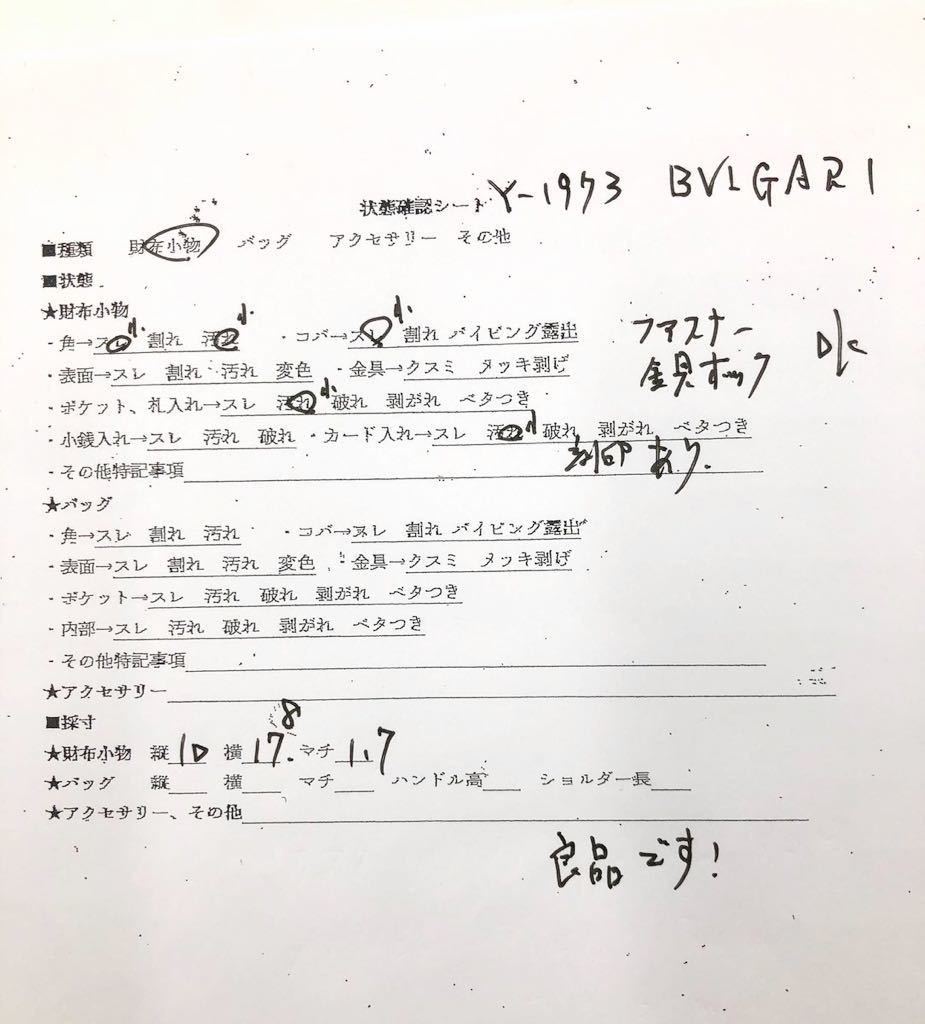 Y-1973 BVLGARI
状態確認シート
■種類 財布小物 バッグ アクセサリー その他
■状態
★財布小物
・角→スレ 小 割れ 汚れ 小 ・コバ→スレ 小 割れ パイピング露出
ファスナー
金具ホック OK
・表面→スレ 割れ 汚れ 変色 ・金具→クスミ メッキ剥げ
・ポケット、札入れ→スレ 汚れ 小 破れ 剥がれ ベタつき
・小銭入れ→スレ 汚れ 破れ ・カード入れ→スレ 汚れ 小 破れ 剥がれ ベタつき
刻印あり.
・その他特記事項
★バッグ
・角→スレ 割れ 汚れ ・コバ→スレ 割れ パイピング露出
・表面→スレ 割れ 汚れ 変色 ・金具→クスミ メッキ剥げ
・ポケット→スレ 汚れ 破れ 剥がれ ベタつき
・内部→スレ 汚れ 破れ 剥がれ ベタつき
・その他特記事項
★アクセサリー
■採寸
★財布小物 縦 10 横 17.8 マチ 1.7
★バッグ 縦 横 マチ ハンドル高 ショルダー長
★アクセサリー、その他
良品です!